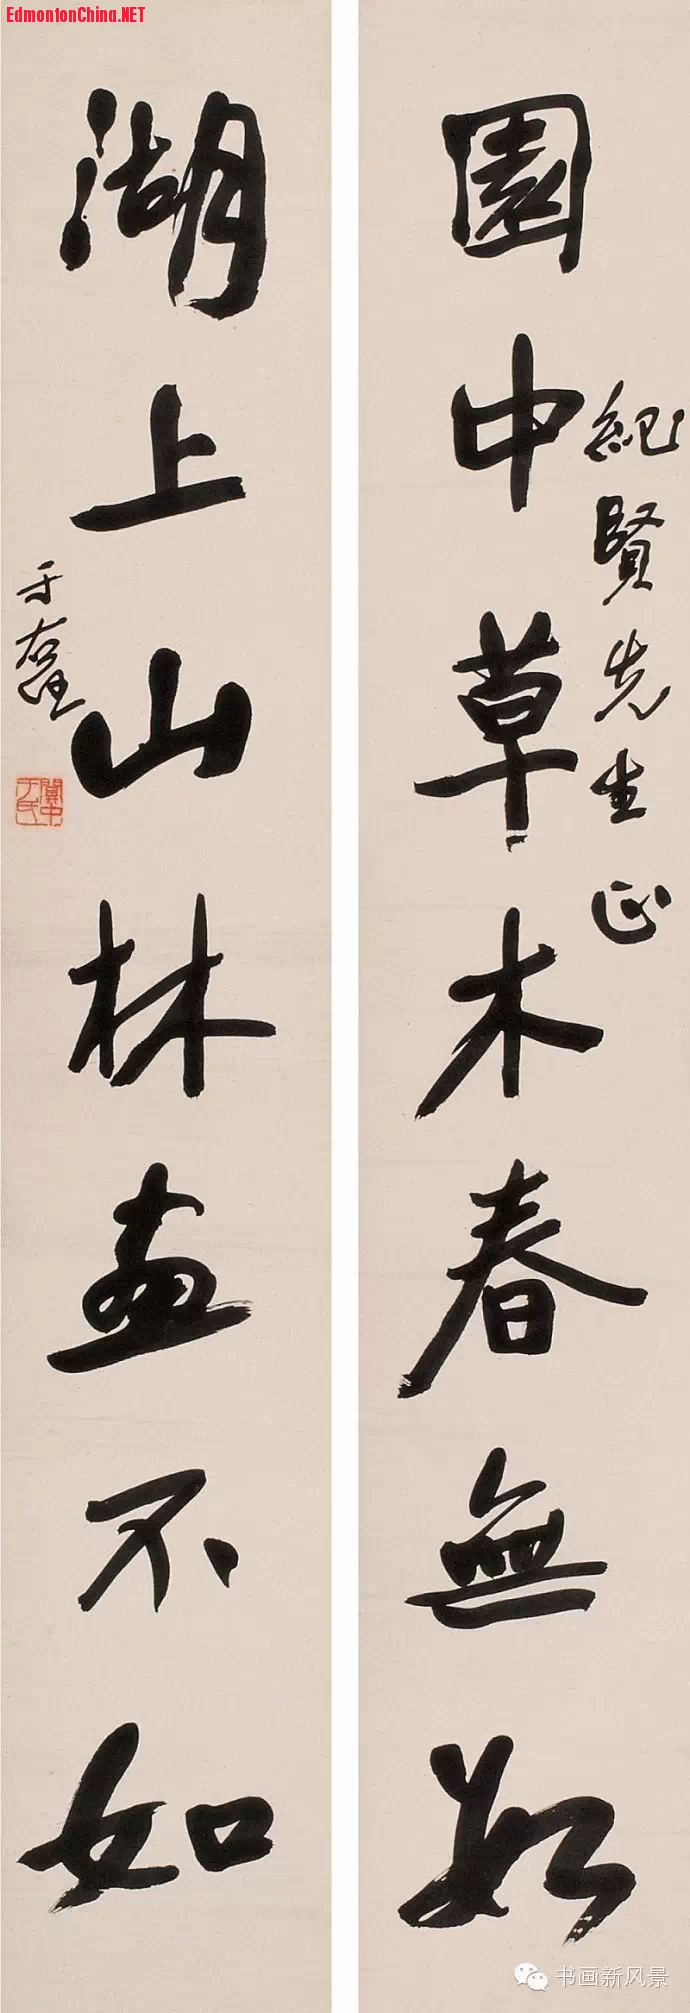 EdmontonChina.NET
園中草木春無數
紀賢先生正
湖上山林畫不如
于右任
關中于氏
书画新风景